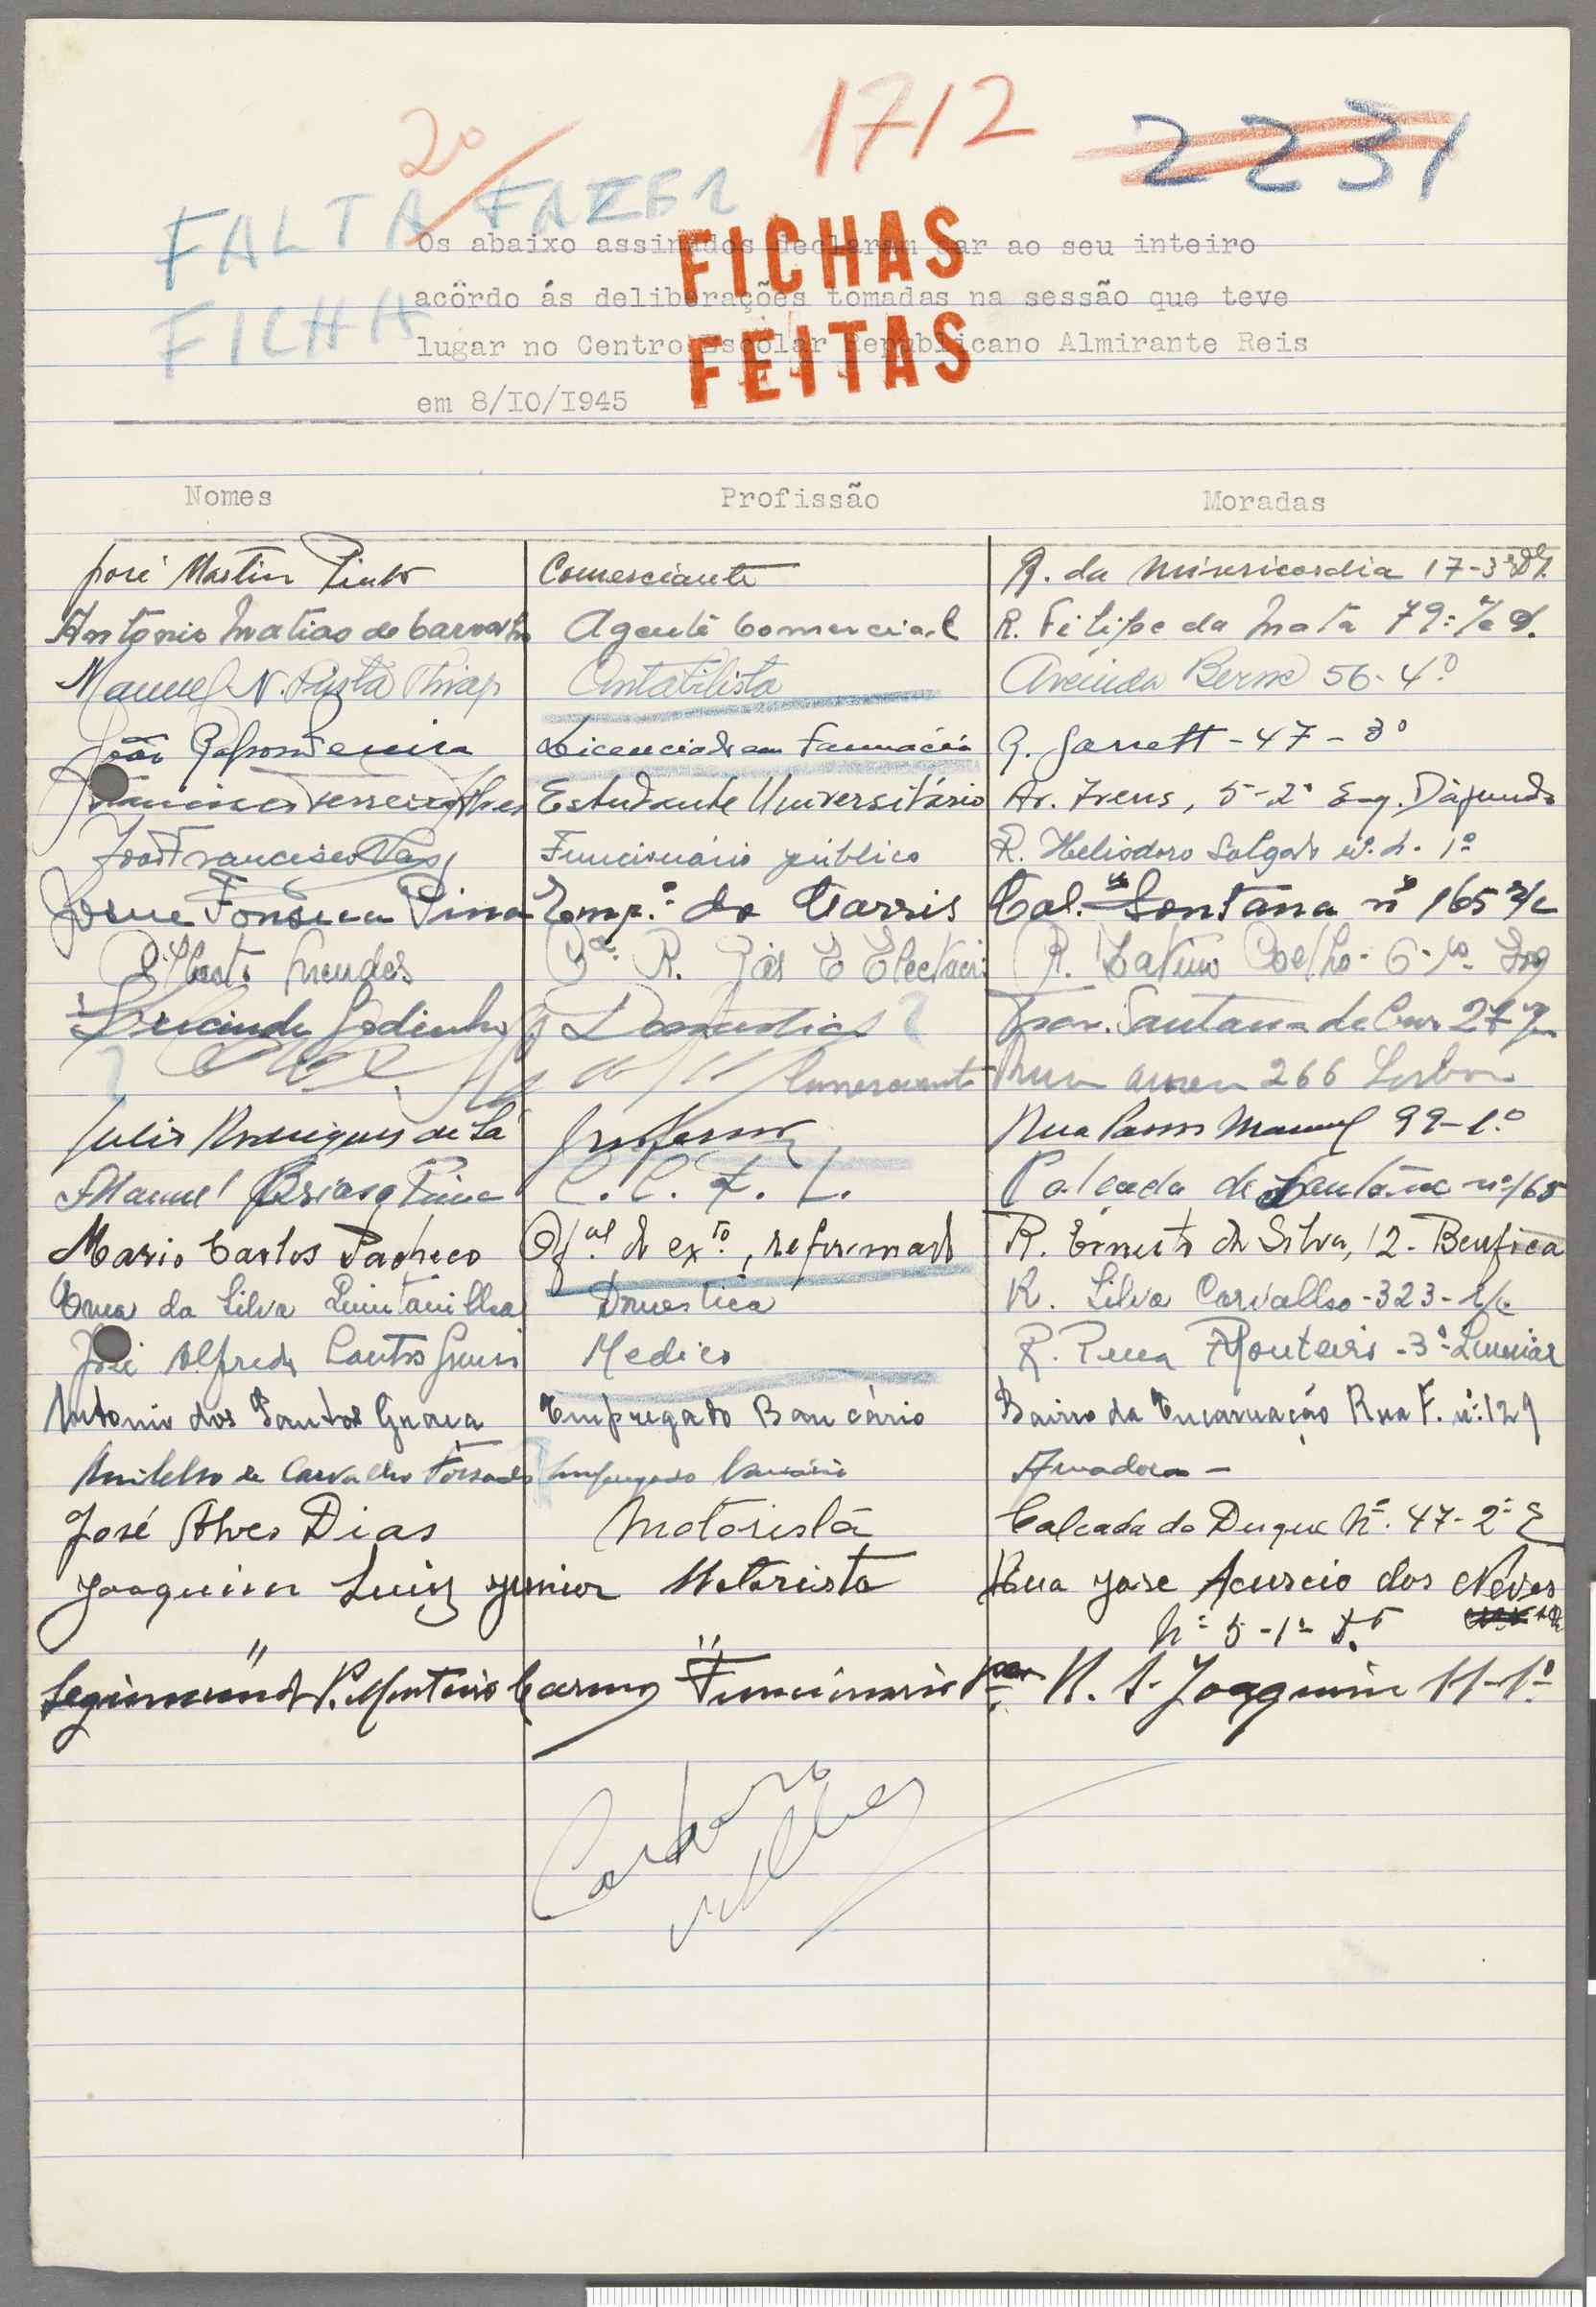 20
1712
2231
FALTA FAZER
FICHA
FICHAS
FEITAS
Os abaixo assinados declaram dar ao seu inteiro
acôrdo ás deliberações tomadas na sessão que teve
lugar no Centro Escolar Republicano Almirante Reis
em 8/IO/I945
Nomes Profissão Moradas
José Martin Pinto Comerciante R. da Misericordia 17-3º
Antonio Matias de Carvalho Agente Comercial R. Filipe da Mata 79
Manuel N. Contabilista Avenida Berne 56-4º
João Licenciado em Farmacia R. Garrett-47-3º
Francisco Ferreira Alves Estudante Universitário Av. Ivens, 5-2º Esq. Dáfundo
José Francisco Funcionário público R. Heliodoro Salgado 1º
Josue Fonseca Pina Emp.º da Carris Cal. Santana nº 165 r/c
Mendes R. Gás E Electrici R. Latino Coelho-6-
Lucinda Godinho Domestica Trav. Santana de Cima 27
Comerciante Rua 266 Lisboa
Julio Rodrigues de Sá Professor Rua Passos Manuel 99-1.º
Manuel Pina C. C. F. L. Calçada de Santana nº 165
Mario Carlos Pacheco Of.al do exto., reformado R. Ernesto da Silva, 12-Benfica
Ema da Silva Quintanilha Domestica R. Silva Carvalho-323-r/c
José Alfredo Medico R. Pena Monteiro-3º-Lumiar
Antonio dos Santos Graca Empregado Bancário Bairro da Encarnação Rua F. nº 129
de Carvalho Empregado bancário Amadora-
José Alves Dias Motorista Calcada do Duque Nº. 47-2º E
Joaquim Luiz Junior Motorista Rua José Acurcio das Neves
Nº 5-1º Dto
Segismundo P. Monteiro Carmo Funcionario R. S. Joaquim 11-1º